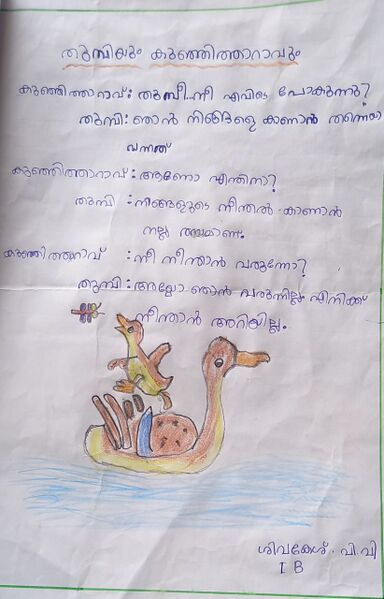 തുമ്പിയും കുഞ്ഞിത്താറാവും
കുഞ്ഞിത്താറാവ്: തുമ്പീ..നീ എവിടെ പോകുന്നു?
തുമ്പി: ഞാൻ നിങ്ങളെ കാണാൻ തന്നെയാ
വന്നത്
കുഞ്ഞിത്താറാവ്: ആണോ എന്തിനാ?
തുമ്പി : നിങ്ങളുടെ നീന്തൽ കാണാൻ
നല്ല രസമാണ്.
കുഞ്ഞിത്താറാവ് : നീ നീന്താൻ വരുന്നോ?
തുമ്പി: അല്ലോ ഞാൻ വരുന്നില്ല. എനിക്ക്
നീന്താൻ അറിയില്ല.
ശിവകേശ്. വി.വി
I B